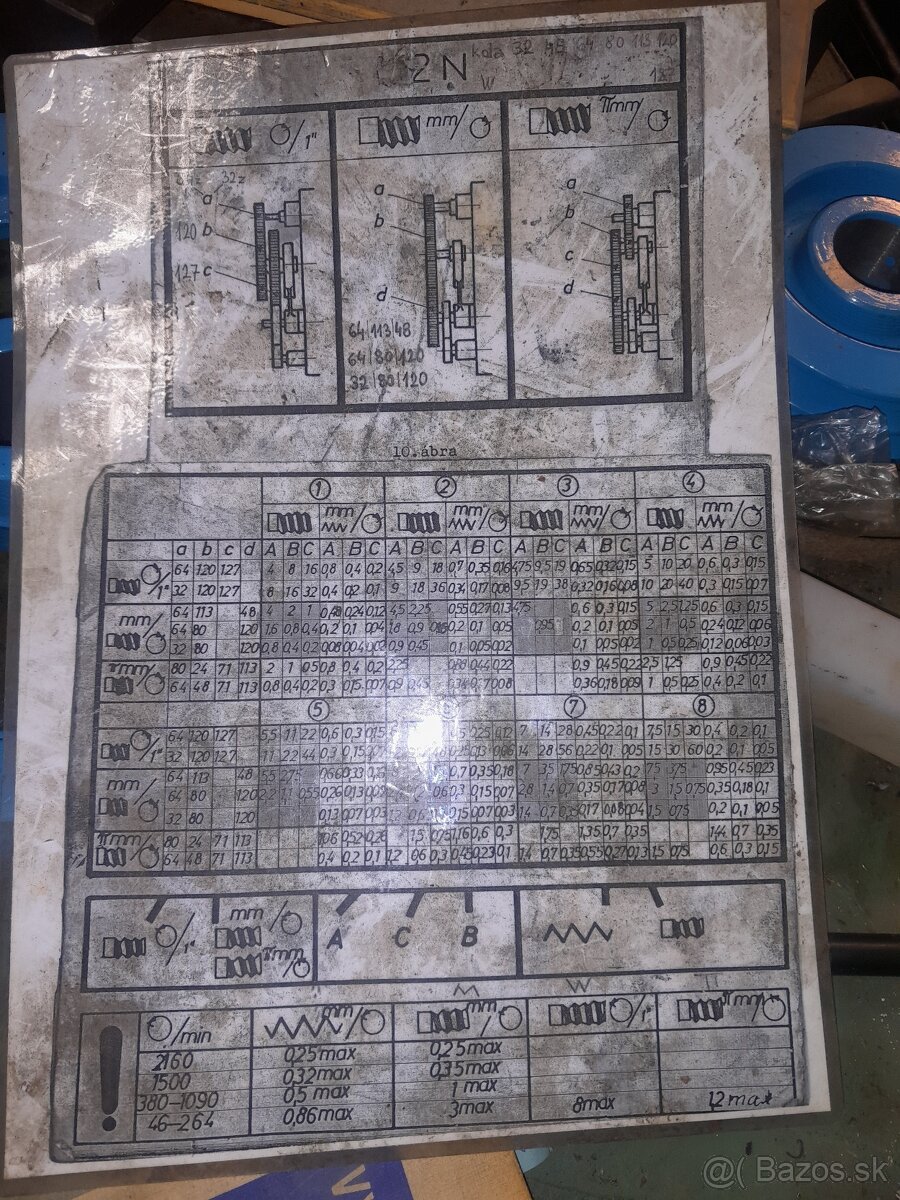 kola 32 48 64 80 113 120
2N
/1" mm/ πmm/
32z
a a a
120 b b b
127 c c
d d
64|113|48
64|80|120
32|80|120
10.ábra
① ② ③ ④
mm/ mm/ mm/ mm/
a b c d A B C A B C A B C A B C A B C A B C A B C A B C
/1" 64 120 127 4 8 16 0,8 0,4 0,2 4,5 9 18 0,7 0,35 0,16 4,75 9,5 19 0,65 0,32 0,15 5 10 20 0,6 0,3 0,15
32 120 127 8 16 32 0,4 0,2 0,1 9 18 36 0,34 0,17 0,08 9,5 19 38 0,32 0,16 0,08 10 20 40 0,3 0,15 0,07
mm/ 64 113 48 4 2 1 0,48 0,24 0,12 4,5 2,25 0,55 0,27 0,13 4,75 0,6 0,3 0,15 5 2,5 1,25 0,6 0,3 0,15
64 80 120 1,6 0,8 0,4 0,2 0,1 0,04 1,8 0,9 0,2 0,1 0,05 0,95 0,2 0,1 0,05 2 1 0,5 0,24 0,12 0,06
32 80 120 0,8 0,4 0,2 0,08 0,04 0,02 0,9 0,45 0,1 0,05 0,02 0,1 0,05 0,02 1 0,5 0,25 0,12 0,06 0,03
πmm/ 80 24 71 113 2 1 0,5 0,8 0,4 0,2 2,25 0,44 0,22 0,9 0,45 0,22 2,5 1,25 0,9 0,45 0,22
64 48 71 113 0,8 0,4 0,2 0,3 0,15 0,07 0,9 0,45 0,08 0,36 0,18 0,09 1 0,5 0,25 0,4 0,2 0,1
⑤ ⑦ ⑧
/1" 64 120 127 5,5 11 22 0,6 0,3 0,15 0,25 0,12 7 14 28 0,45 0,22 0,1 7,5 15 30 0,4 0,2 0,1
32 120 127 11 22 44 0,3 0,15 14 28 56 0,22 0,1 0,05 15 30 60 0,2 0,1 0,05
mm/ 64 113 48 5,5 2,75 0,66 0,33 0,7 0,35 0,18 7 3,5 1,75 0,85 0,43 0,2 7,5 3,75 0,95 0,45 0,23
64 80 120 2,2 1,1 0,55 0,26 0,13 0,3 0,15 0,07 2,8 1,4 0,7 0,35 0,17 0,08 3 1,5 0,75 0,35 0,18 0,1
32 80 120 0,13 0,07 0,03 0,15 0,07 0,03 1,4 0,7 0,35 0,17 0,08 0,04 1,5 0,75 0,2 0,1 0,05
πmm/ 80 24 71 113 1,06 0,52 0,26 1,5 0,75 1,16 0,6 0,3 1,75 1,35 0,7 0,35 1,44 0,7 0,35
64 48 71 113 0,4 0,2 0,1 1,2 0,6 0,3 0,45 0,23 0,1 1,4 0,7 0,35 0,55 0,27 0,13 1,5 0,75 0,6 0,3 0,15
/1" mm/ πmm/
A C B
! /min mm/ mm/ /1" πmm/
2160 0,25max 0,25max
1500 0,32max 0,35max
380–1090 0,5 max 1 max
46–264 0,86max 3max 8max 12max
@( Bazos.sk